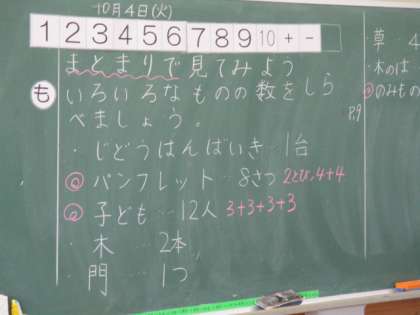 10月4日(火)
1 2 3 4 5 6 7 8 9 10 + -
まとまりで見てみよう
も いろいろなものの数をしら
べましょう。 P.9
・じどうはんばいき…1台
◎ パンフレット…8さつ 2とび,4+4
◎ 子ども…12人 3+3+3+3
・木 …2本
・門 …1つ
・草…4
・木のは
◎のみもの